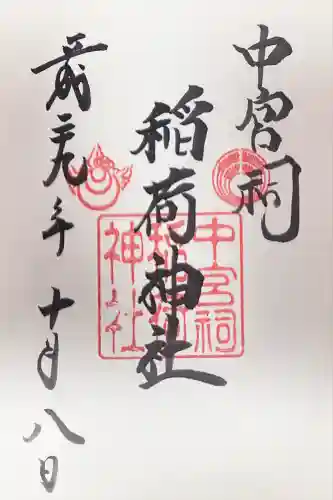 中宮祠
稲荷神社
平成二九年十月八日
中宮祠
稲荷
神社